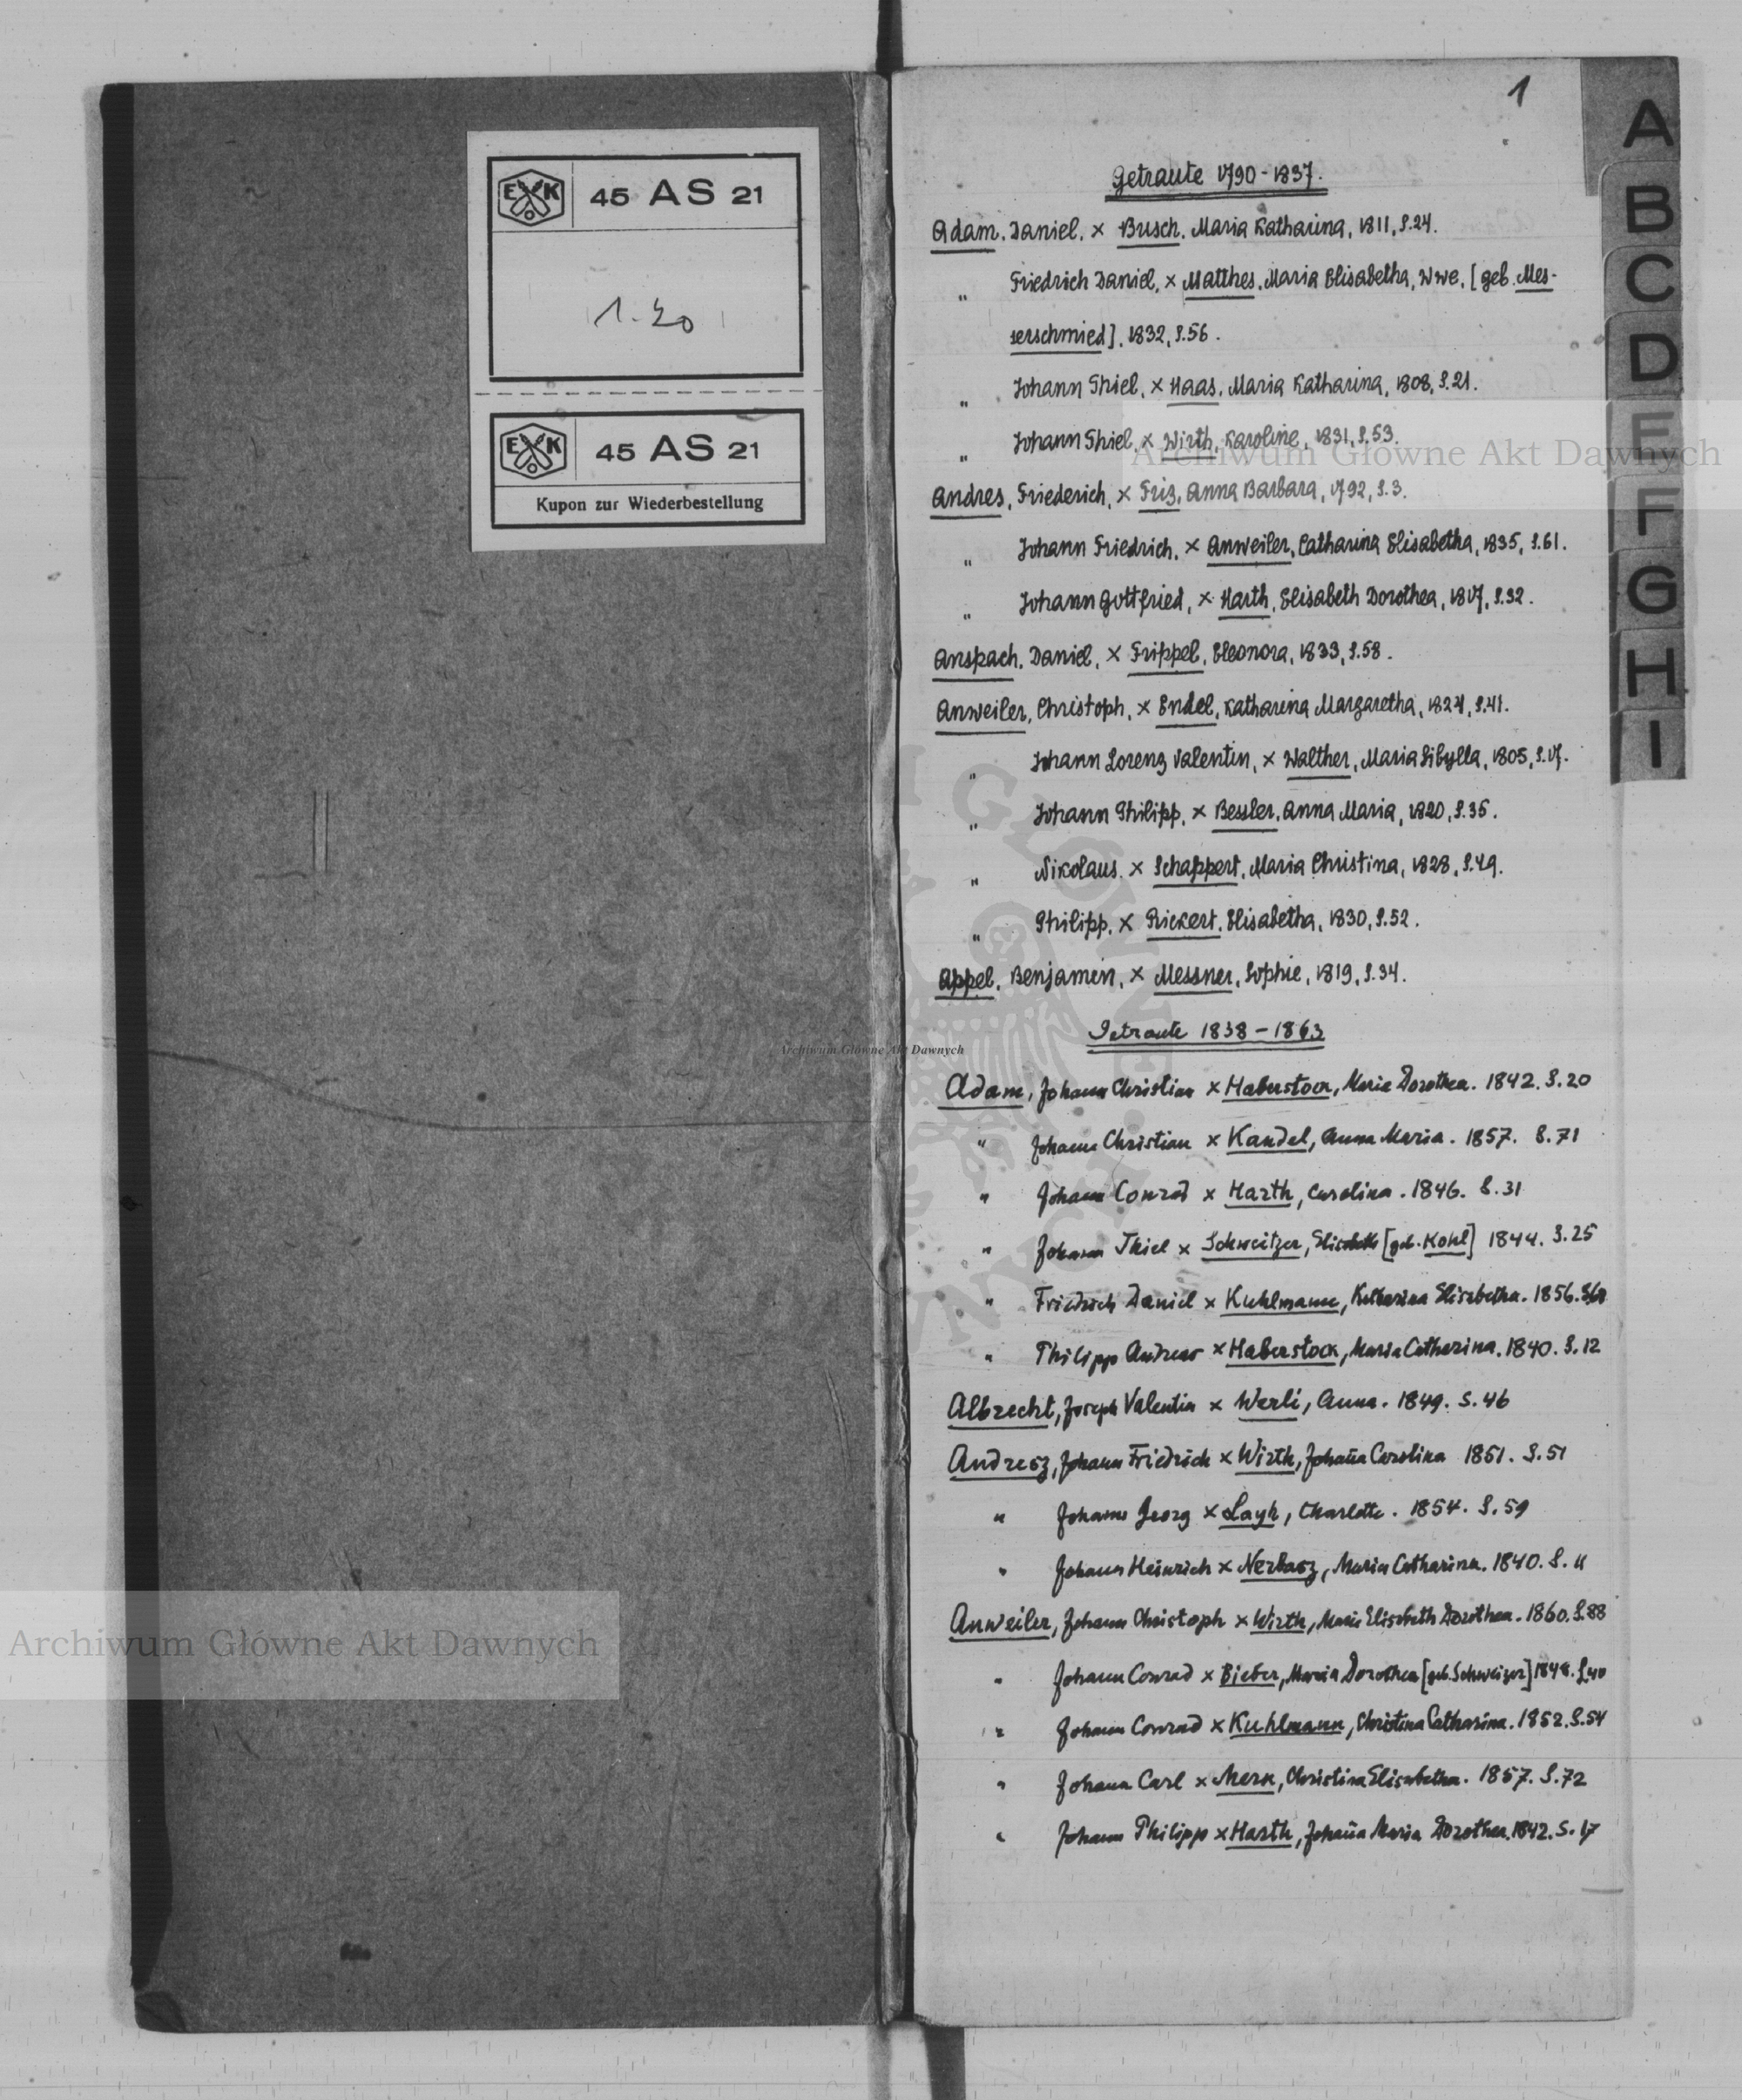 E K 45 AS 21
1.20
E K 45 AS 21
Kupon zur Wiederbestellung
1
A
B
C
D
E
F
G
H
I
Getraute 1790-1837.
Adam, Daniel, × Busch, Maria Katharina, 1811, S.24.
" Friedrich Daniel, × Matthes, Maria Elisabetha, Wwe, [geb. Mes-
serschmied], 1832, S.56.
" Johann Thiel, × Haas, Maria Katharina, 1808, S.21.
" Johann Thiel, × Wirth, Karoline, 1831, S.53.
Andres, Friederich, × Friz, Anna Barbara, 1792, S.3.
" Johann Friedrich, × Anweiler, Catharina Elisabetha, 1835, S.61.
" Johann Gottfried, × Harth, Elisabeth Dorothea, 1817, S.32.
Anspach, Daniel, × Frippel, Eleonora, 1833, S.58.
Anweiler, Christoph, × Endel, Katharina Margaretha, 1824, S.41.
" Johann Lorenz Valentin, × Walther, Maria Sibylla, 1805, S.17.
" Johann Philipp, × Bessler, Anna Maria, 1820, S.35.
" Nikolaus, × Schappert, Maria Christina, 1828, S.49.
" Philipp, × Rickert, Elisabetha, 1830, S.52.
Appel, Benjamin, × Messner, Sophie, 1819, S.34.
Getraute 1838-1863
Adam, Johann Christian × Haberstock, Maria Dorothea. 1842. S.20
" Johann Christian × Kandel, Anna Maria. 1857. S.71
" Johann Conrad × Harth, Carolina. 1846. S.31
" Johann Thiel × Schweitzer, Elisabeth [geb. Kohl] 1844. S.25
" Friedrich Daniel × Kuhlmann, Katharina Elisabetha. 1856.
" Philipp Andreas × Haberstock, Maria Catharina. 1840. S.12
Albrecht, Joseph Valentin × Werli, Anna. 1849. S.46
Andresz, Johann Friedrich × Wirth, Johan̄a Carolina 1851. S.51
" Johann Georg × Layh, Charlotte. 1854. S.59
" Johann Heinrich × Nerbasz, Maria Catharina. 1840. S.11
Anweiler, Johann Christoph × Wirth, Maria Elisabeth Dorothea. 1860. S.88
" Johann Conrad × Bieber, Maria Dorothea [geb. Schweizer] 1848. S.40
" Johann Conrad × Kuhlmann, Christina Catharina. 1852. S.54
" Johann Carl × Merk, Christina Elisabetha. 1857. S.72
" Johann Philipp × Harth, Johan̄a Maria Dorothea. 1842. S.17
Archiwum Główne Akt Dawnych
Archiwum Główne Akt Dawnych
Archiwum Główne Akt Dawnych